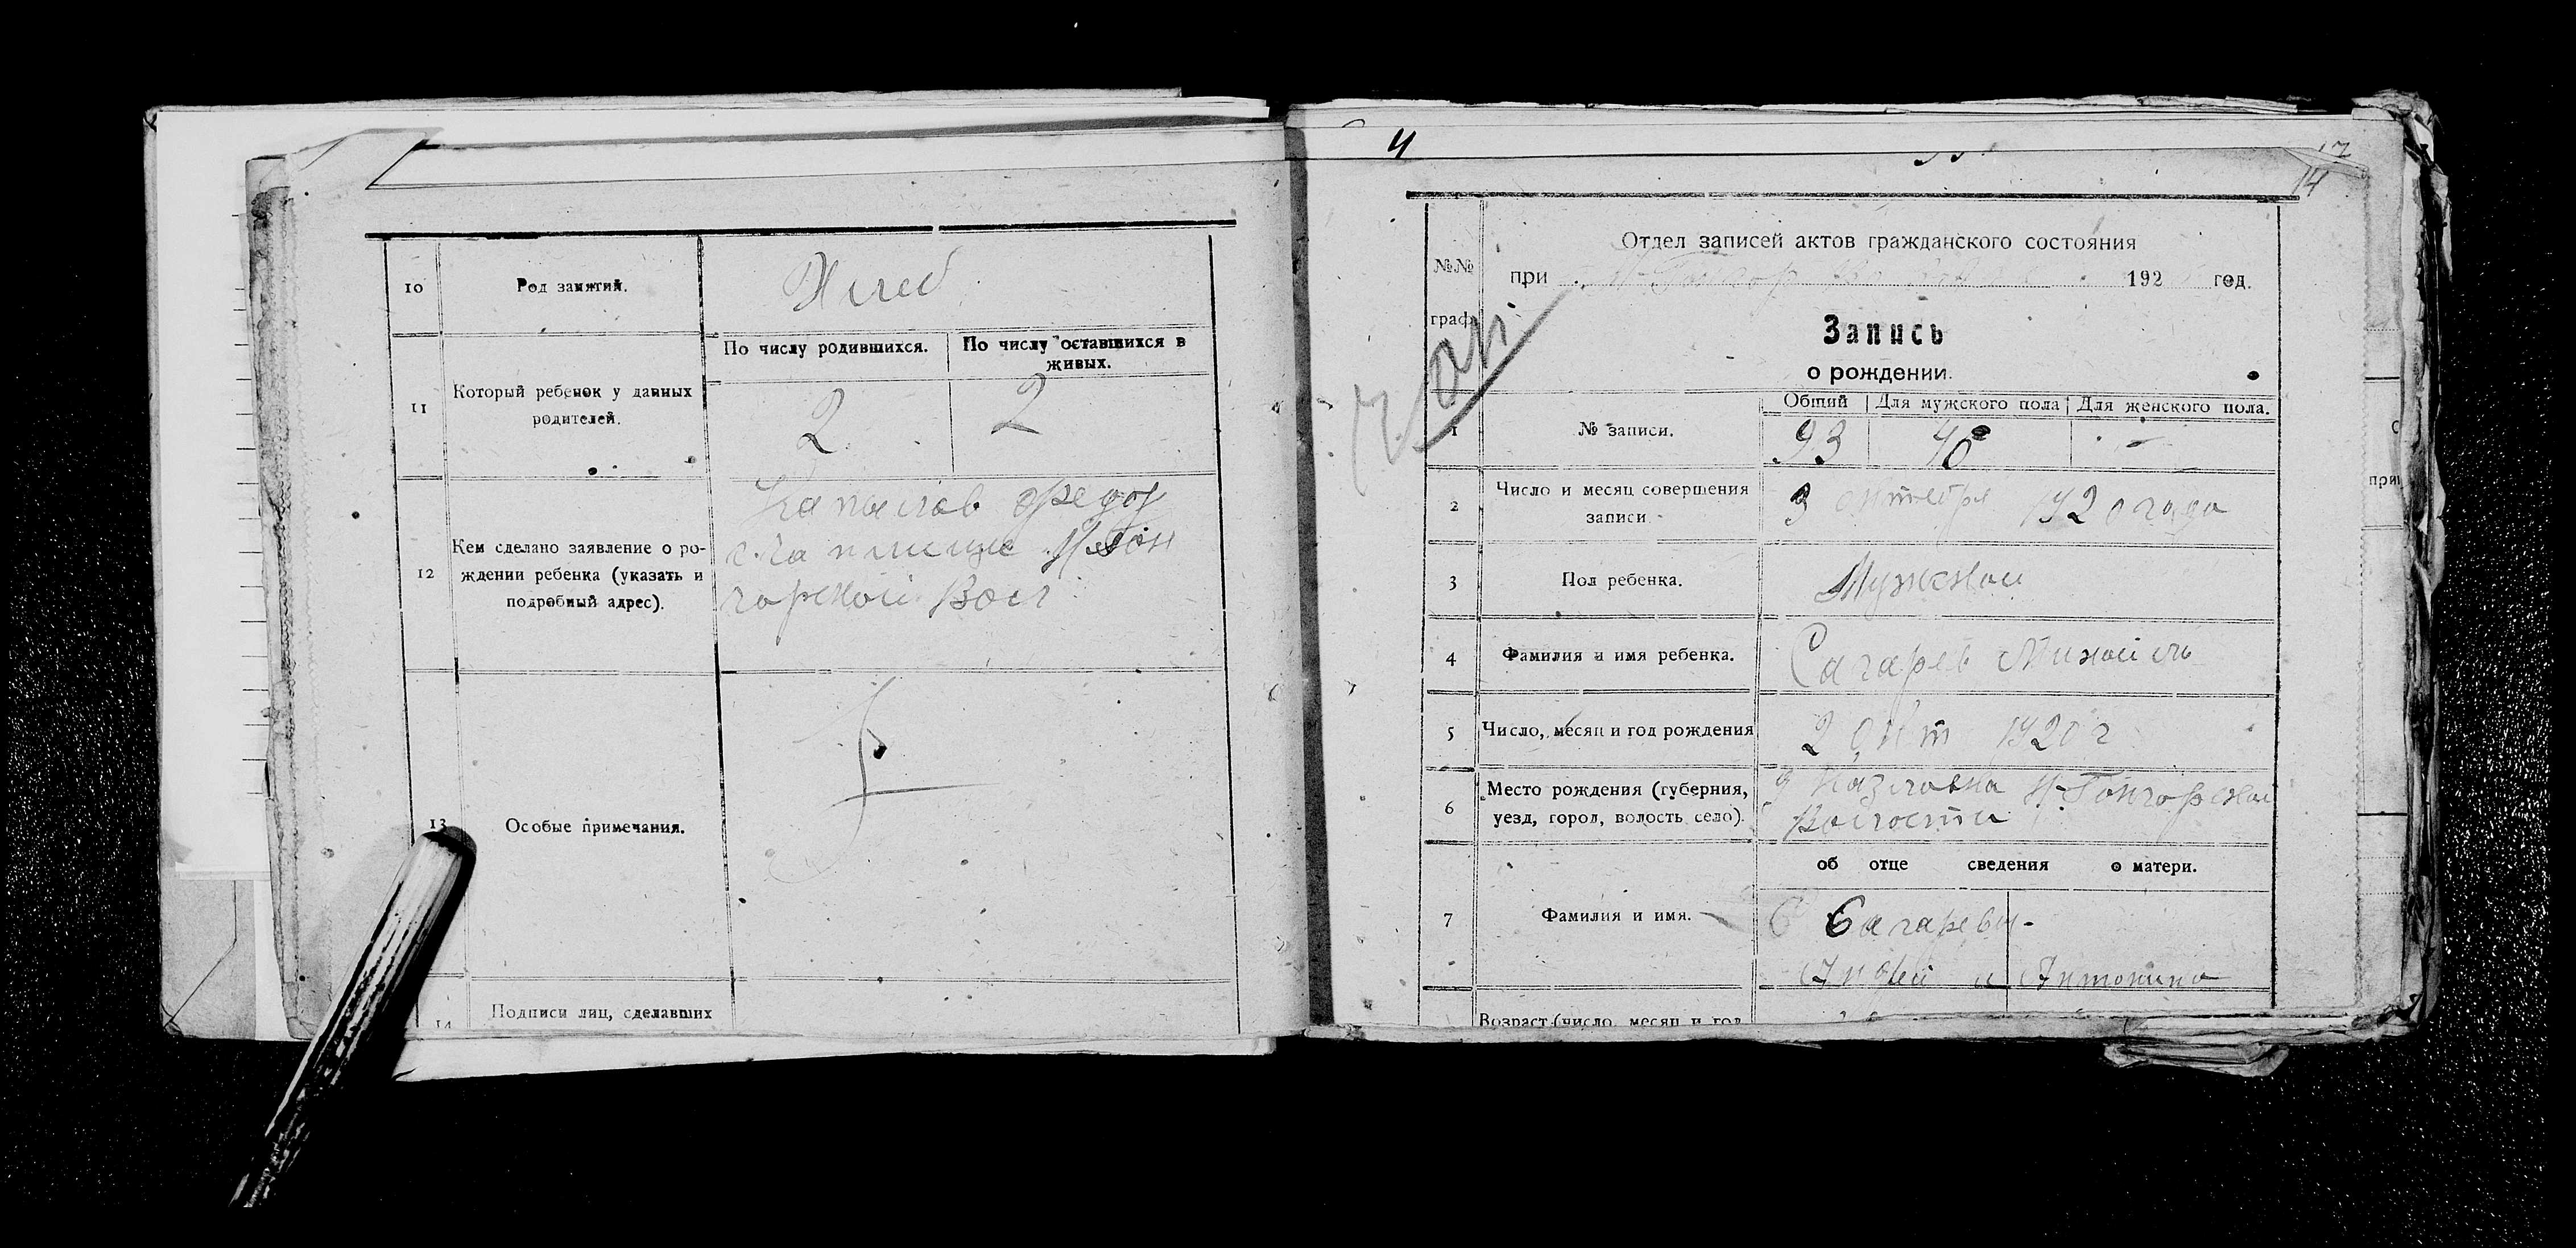 10
Род занятий.
Хлеб
11
Который ребенок у данных
родителей.
По числу родившихся.
По числу оставшихся в
живых.
2
2
12
Кем сделано заявление о ро-
ждении ребенка (указать и
подробный адрес).
Федор
Вол
13
Особые примечания.
14
Подписи лиц, сделавших
4
14
№№
граф.
Отдел записей актов гражданского состояния
при 192 год.
Запись
о рождении.
1
№ записи.
Общий
Для мужского пола
Для женского пола.
93
40
-
2
Число и месяц совершения
записи
3 октебря 1920 года
3
Пол ребенка.
Мужской
4
Фамилия и имя ребенка.
Сагарев Михаил
5
Число, месяц и год рождения
2 Окт 1920 г
6
Место рождения (губерния,
уезд, город, волость село).
д Казловка
Волости
об отце сведения о матери.
7
Фамилия и имя.
Сагаревы-
и Антонина
Возраст (число, месяц и год